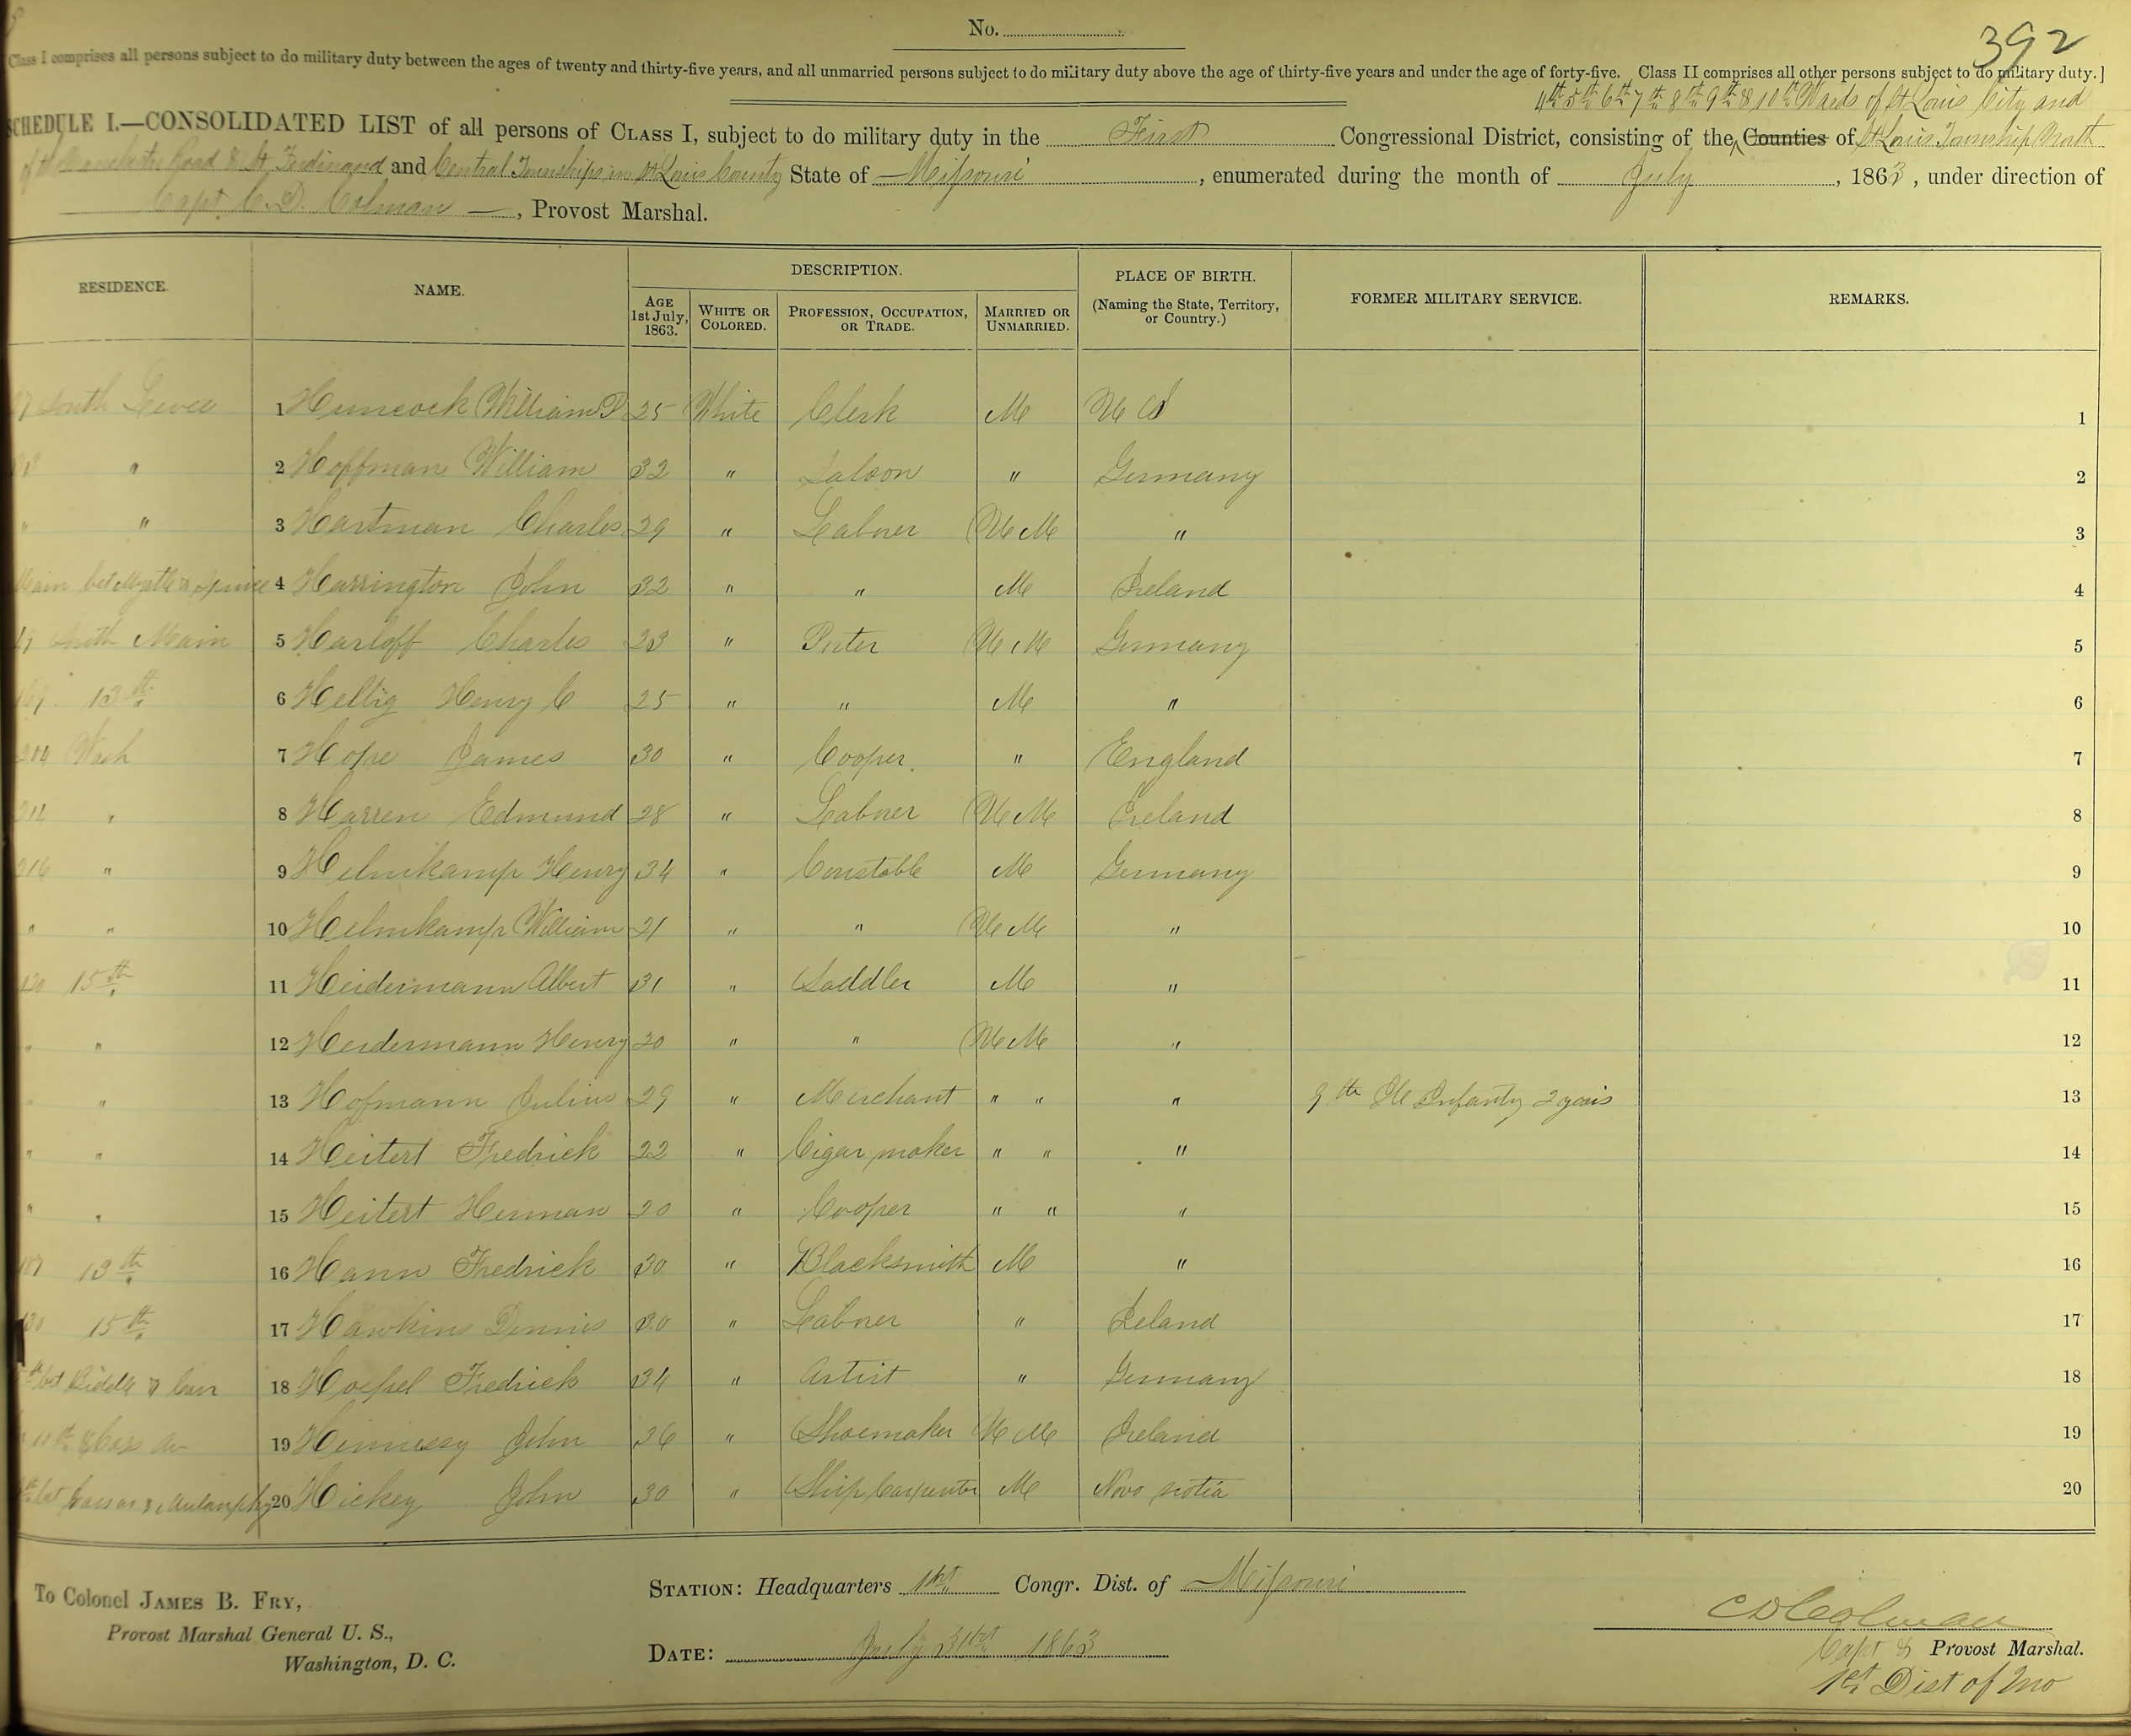 No.
392
Class I comprises all persons subject to do military duty between the ages of twenty and thirty-five years, and all unmarried persons subject to do military duty above the age of thirty-five years and under the age of forty-five. Class II comprises all other persons subject to do military duty.]
4th 5th 6th 7th 8th 9th & 10th Wards of St Louis City and
SCHEDULE I.—CONSOLIDATED LIST of all persons of CLASS I, subject to do military duty in the First Congressional District, consisting of the Counties of St Louis Township North
of the Manchester Road & St Ferdinand and Central Townships in St Louis County State of Missouri, enumerated during the month of July, 1863, under direction of
Capt. C. D. Colman, Provost Marshal.
RESIDENCE. NAME. DESCRIPTION. PLACE OF BIRTH. (Naming the State, Territory, or Country.) FORMER MILITARY SERVICE. REMARKS.
AGE 1st July, 1863. WHITE OR COLORED. PROFESSION, OCCUPATION, OR TRADE. MARRIED OR UNMARRIED.
South Levee 1 Huncock William P 25 White Clerk M U S 1
" 2 Hoffman William 32 " Saloon " Germany 2
" " 3 Hartman Charles 29 " Laborer U M " 3
Main bet Myrtle & Spruce 4 Harrington John 32 " " M Ireland 4
South Main 5 Harloff Charles 23 " Porter U M Germany 5
13th 6 Helbig Henry C 25 " " M " 6
204 Wash 7 Hope James 30 " Cooper " England 7
" 8 Harren Edmund 28 " Laborer U M Ireland 8
216 " 9 Helmkamp Henry 34 " Constable M Germany 9
" " 10 Helmkamp William 21 " " U M " 10
15th 11 Heidermann Albert 31 " Saddler M " 11
" " 12 Heidermann Henry 20 " " U M " 12
" " 13 Hofmann Julius 29 " Merchant " " " 9th Ill Infantry 2 years 13
" " 14 Heitert Fredrick 22 " Cigar maker " " " 14
" " 15 Heitert Herman 20 " Cooper " " " 15
13th 16 Hann Fredrick 30 " Blacksmith M " 16
15th 17 Hawkins Dennis 30 " Laborer " Ireland 17
bet Biddle & Carr 18 Hoepel Fredrick 34 " Artist " Germany 18
11th & Cass Av 19 Hennessy John 36 " Shoemaker U M Ireland 19
bet Cass av & Mulanphy 20 Hickey John 30 " Ship Carpenter M Nova scotia 20
To Colonel JAMES B. FRY,
Provost Marshal General U. S.,
Washington, D. C.
STATION: Headquarters 1st Congr. Dist. of Missouri
DATE: July 31st 1863
C D Colman
Capt & Provost Marshal.
1st Dist of Mo